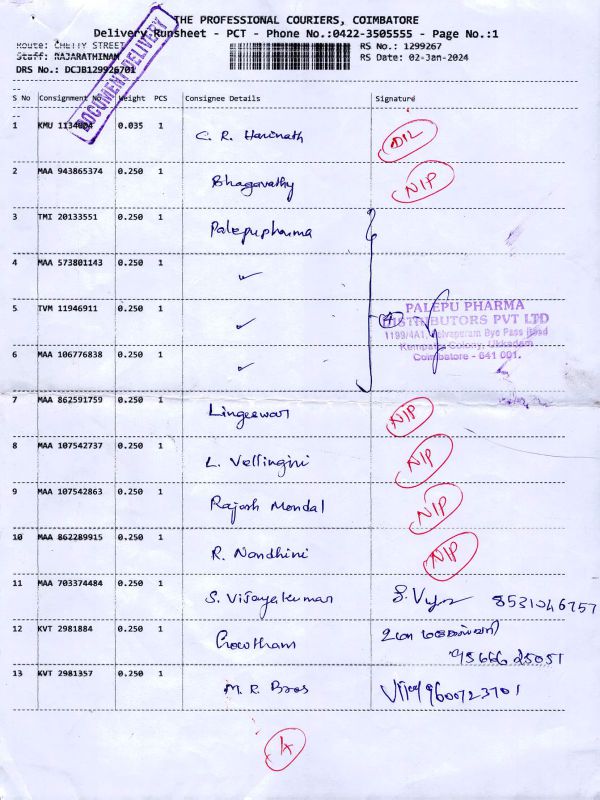 THE PROFESSIONAL COURIERS, COIMBATORE
Delivery Runsheet - PCT - Phone No.:0422-3505555 - Page No.:1
Route: CHETTY STREET RS No.: 1299267
Staff: RAJARATHINAM RS Date: 02-Jan-2024
DRS No.: DCJB129926701
DOCUMENT DELIVERY
S No Consignment No Weight PCS Consignee Details Signature
1 KMU 0.035 1 C. R. Harinath DIL
2 MAA 943865374 0.250 1 Bhagavathy NIP
3 TMI 20133551 0.250 1 Palepupharma
4 MAA 573801143 0.250 1 ✓
5 TVM 11946911 0.250 1 ✓ 4
PALEPU PHARMA
DISTRIBUTORS PVT LTD
1199/4A1, Selvapuram Bye Pass Road
Colony, Ukkadam
Coimbatore - 641 001.
6 MAA 106776838 0.250 1 ✓
7 MAA 862591759 0.250 1 Lingeswar NIP
8 MAA 107542737 0.250 1 L. Vellingiri NIP
9 MAA 107542863 0.250 1 Rajosh Mondal NIP
10 MAA 862289915 0.250 1 R. Nandhini NIP
11 MAA 703374484 0.250 1 S. Vijayakumar 8531046757
12 KVT 2981884 0.250 1 Gowtham உமா மகேஸ்வரி
95666 25051
13 KVT 2981357 0.250 1 M. R. Bros Vijay 9600723701